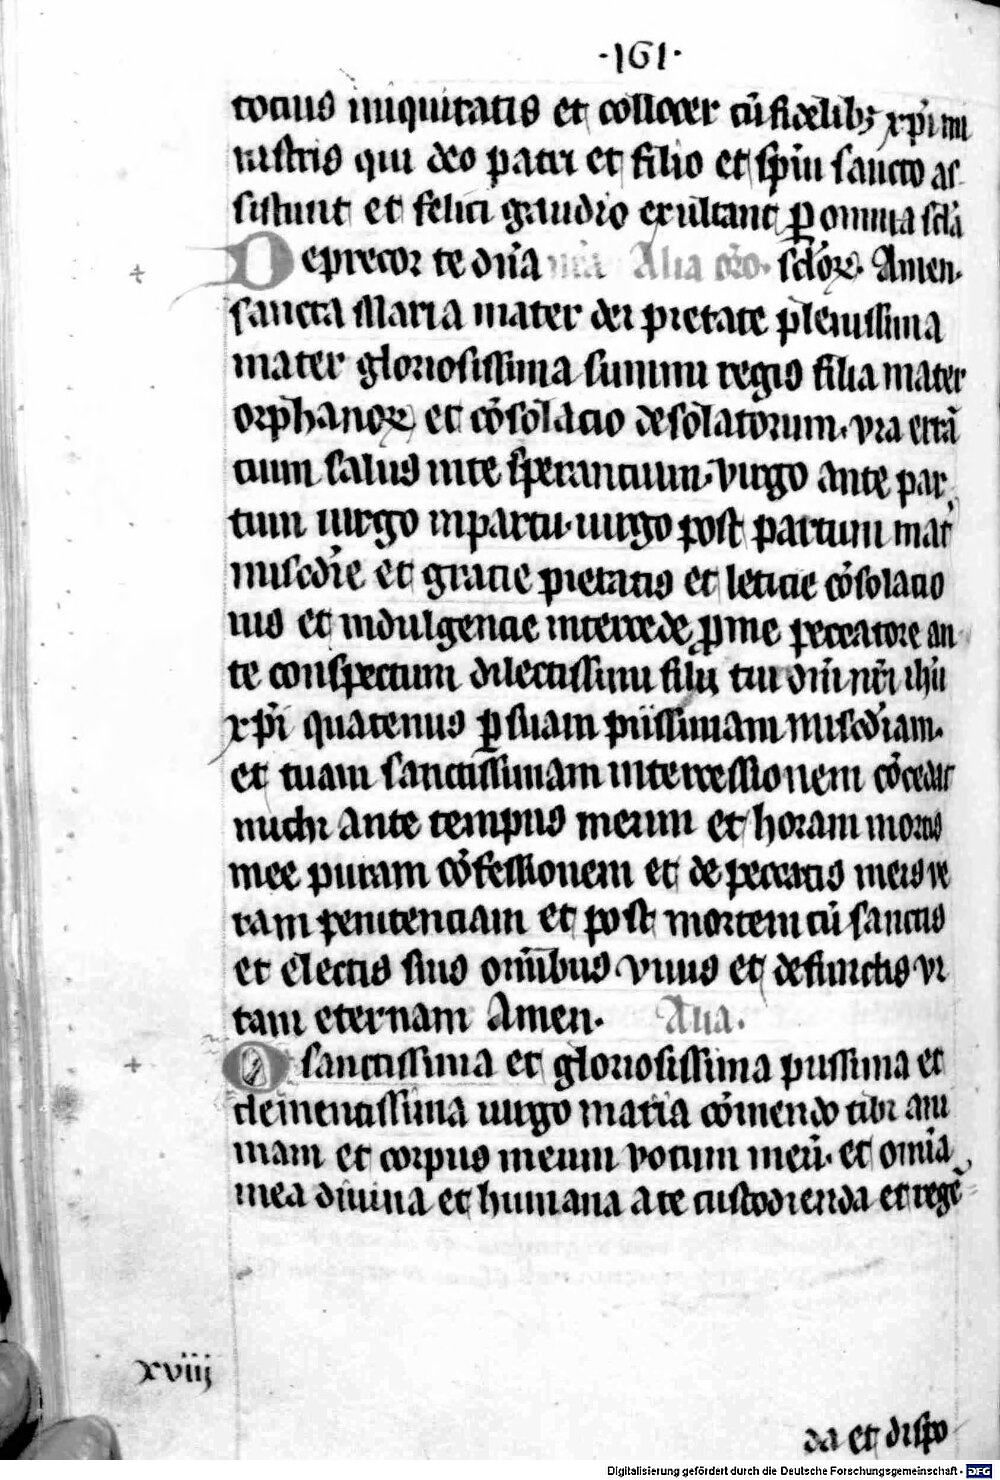 ·161·
tocius iniquitatis et collocet cū fidelibꝫ xp̄i mi
nistris qui deo patri et filio et sp̄iu sancto as
sistunt et felici gaudio exultant ꝑ omnia sclā
Deprecor te dn̄a Alia or̄o. sclōꝝ. Amen.
sancta Maria mater dei pietate plenissima
mater gloriosissima summi regis filia mater
orphanoꝝ et cōsolacio desolatorum. via errā
cium salus in te sperancium. virgo ante par
tum uirgo in partu. uirgo post partum mat̄
misc̄die et gracie pietatis et leticie cōsolacio
nis et indulgencie intercede ꝓ me peccatore an
te conspectum dilectissimi filij tui dn̄i nr̄i ih̄u
xp̄i quatenus ꝑ suam piissimam misc̄diam.
et tuam sanctissimam intercessionem cōcedat
michi ante tempus meum et horam mortis
mee puram cōfessionem et de peccatis meis ve
ram penitenciam et post mortem cū sanctis
et electis suis om̄ibus viuis et defunctis vi
tam eternam Amen. Alia.
O sanctissima et gloriosissima piissima et
clementissima uirgo maria cōmendo tibi ani
mam et corpus meum votum meū. et om̄ia
mea diuina et humana a te custodienda et regē
xviij
da et dispo
Digitalisierung gefördert durch die Deutsche Forschungsgemeinschaft - DFG